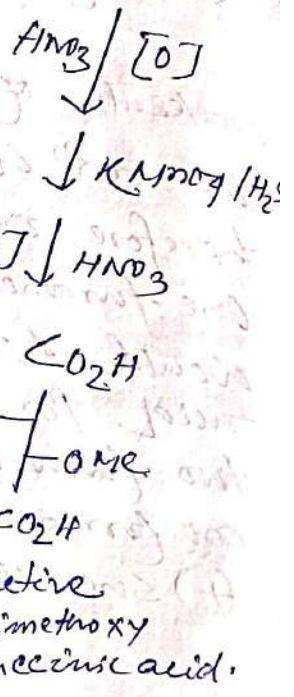 HNO3 [O]
KMnO4 / H2S
] HNO3
CO2H
OMe
CO2H
ctive
imethoxy
ccinic acid.